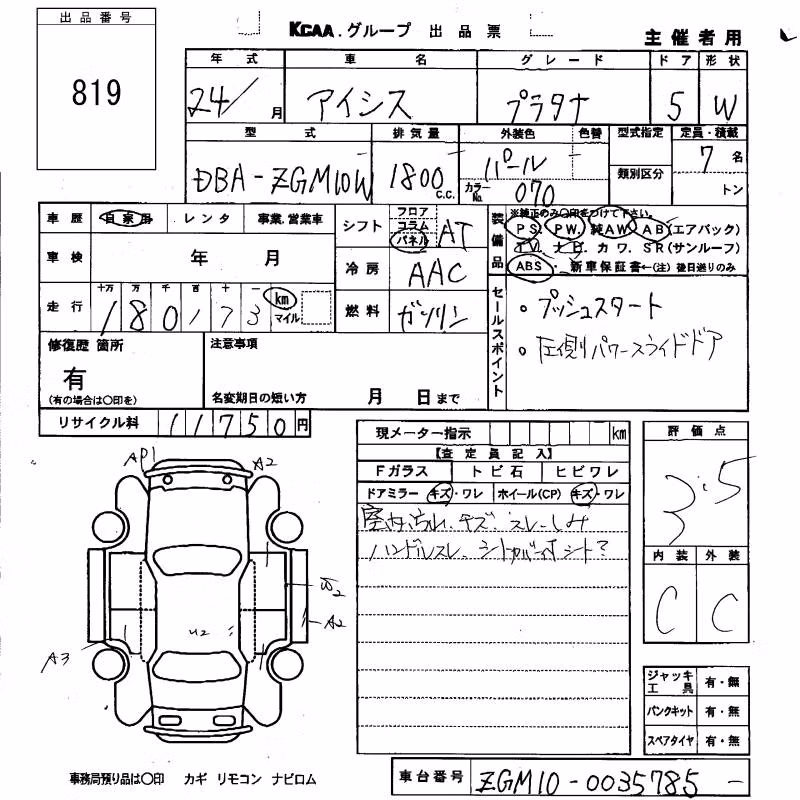 出品番号
819
KCAA.グループ 出品票
主催者用
年式 車名 グレード ドア 形状
24/ 月 アイシス プラタナ 5 W
型式 排気量 外装色 色替 型式指定 定員・積載
DBA-ZGM10W 1800 C.C. パール カラーNo. 070 類別区分 7名
トン
車歴 自家用 レンタ 事業.営業車
シフト フロア コラム パネル AT
装備品
※純正のみ〇印をつけて下さい。
PS. PW. 純AW AB(エアバック)
TV. ナビ. カワ. SR(サンルーフ)
ABS・新車保証書←(注)後日送りのみ
車検 年 月
冷房 AAC
走行 十万 万 千 百 十 一
180173 km マイル
燃料 ガソリン
セールスポイント
。プッシュスタート
。左側パワースライドドア
修復歴 箇所
有
(有の場合は〇印を)
注意事項
名変期日の短い方 月 日まで
リサイクル料 11750円
現メーター指示 km
【査定員記入】
Fガラス トビ石 ヒビワレ
ドアミラー キズ・ワレ ホイール(CP) キズ・ワレ
室内汚れ.キズ.スレ.しみ
ハンドルスレ、シートカバー付シート?
評価点
3.5
内装 外装
C C
AP1 A2
W2
A2
U2
A3
ジャッキ工具 有・無
パンクキット 有・無
スペアタイヤ 有・無
事務局預り品は〇印 カギ リモコン ナビロム
車台番号 ZGM10-0035785-